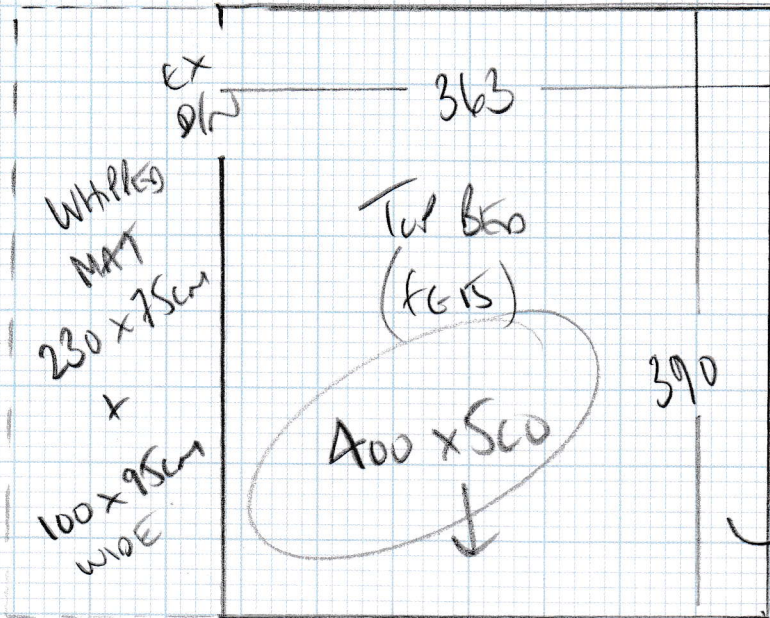 EX
363
WHIPPED
MAT
230 x 75cm
x
100 x 95cm
WIDE
TOP BED
400 x 500
390